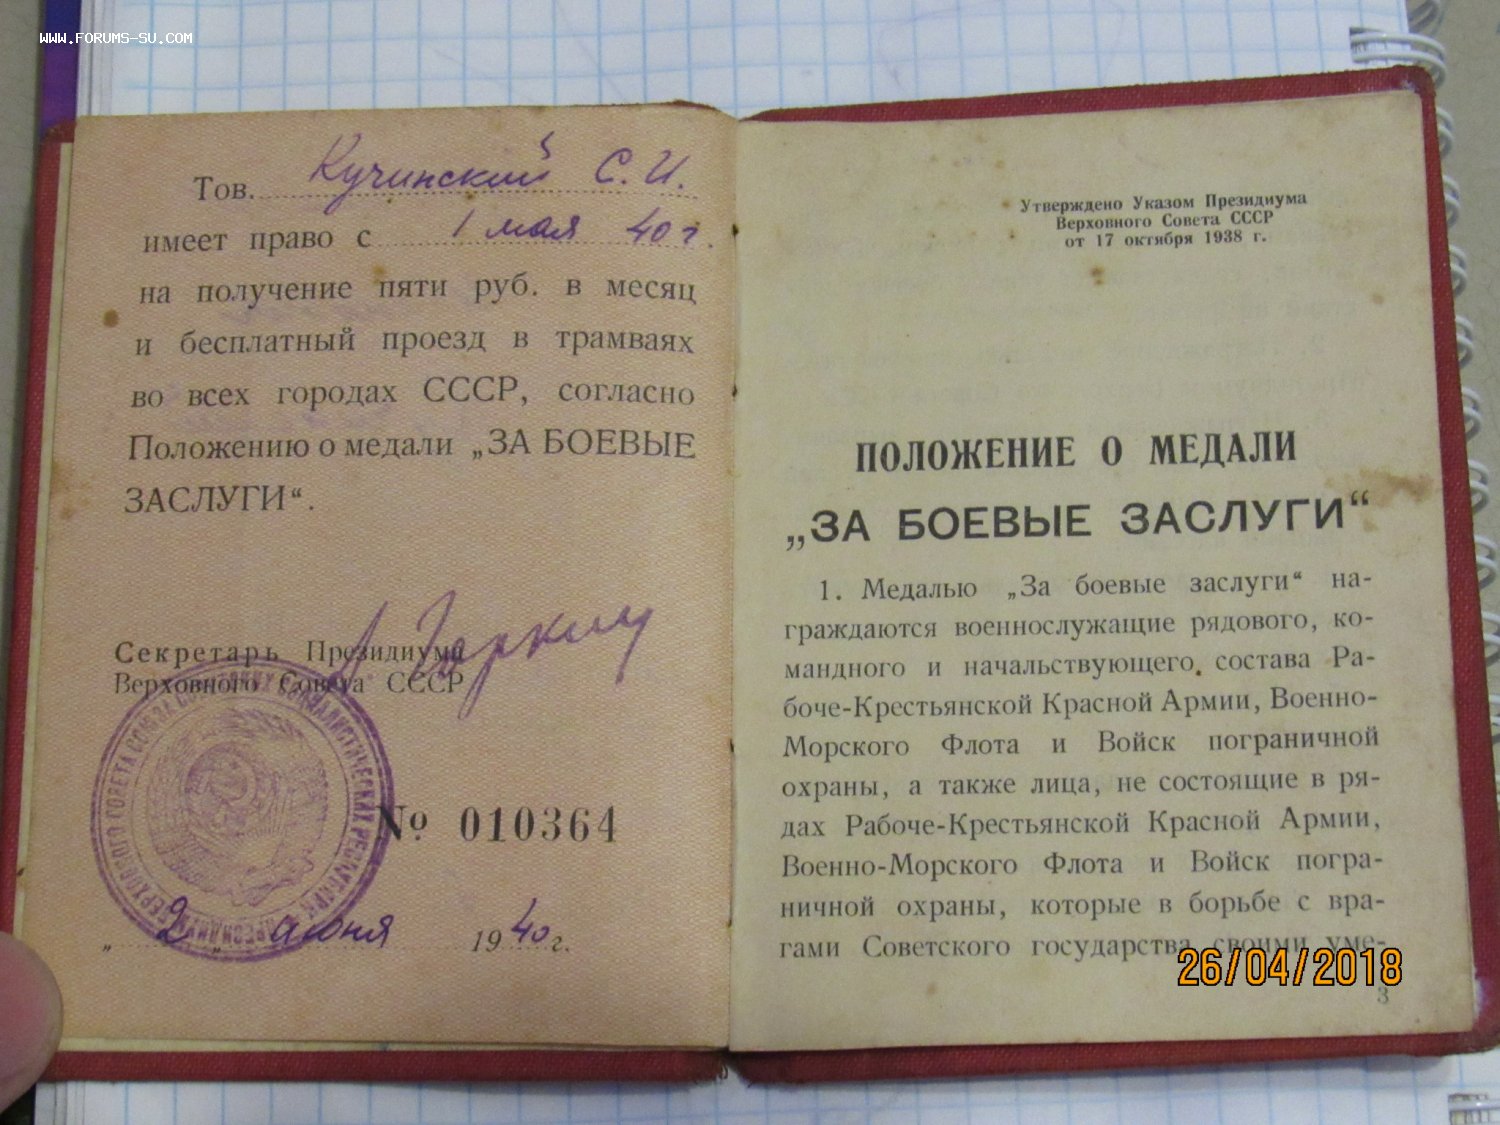 WWW.FORUMS-SU.COM
Тов. Кучинский С. И.
имеет право с 1 мая 40 г.
на получение пяти руб. в месяц
и бесплатный проезд в трамваях
во всех городах СССР, согласно
Положению о медали „ЗА БОЕВЫЕ
ЗАСЛУГИ“.
Секретарь Президиума
Верховного Совета СССР
№ 010364
„ 2 „ июня 1940 г.
Утверждено Указом Президиума
Верховного Совета СССР
от 17 октября 1938 г.
ПОЛОЖЕНИЕ О МЕДАЛИ
„ЗА БОЕВЫЕ ЗАСЛУГИ“
1. Медалью „За боевые заслуги“ на-
граждаются военнослужащие рядового, ко-
мандного и начальствующего состава Ра-
боче-Крестьянской Красной Армии, Военно-
Морского Флота и Войск пограничной
охраны, а также лица, не состоящие в ря-
дах Рабоче-Крестьянской Красной Армии,
Военно-Морского Флота и Войск погра-
ничной охраны, которые в борьбе с вра-
гами Советского государства своими уме-
26/04/2018
3